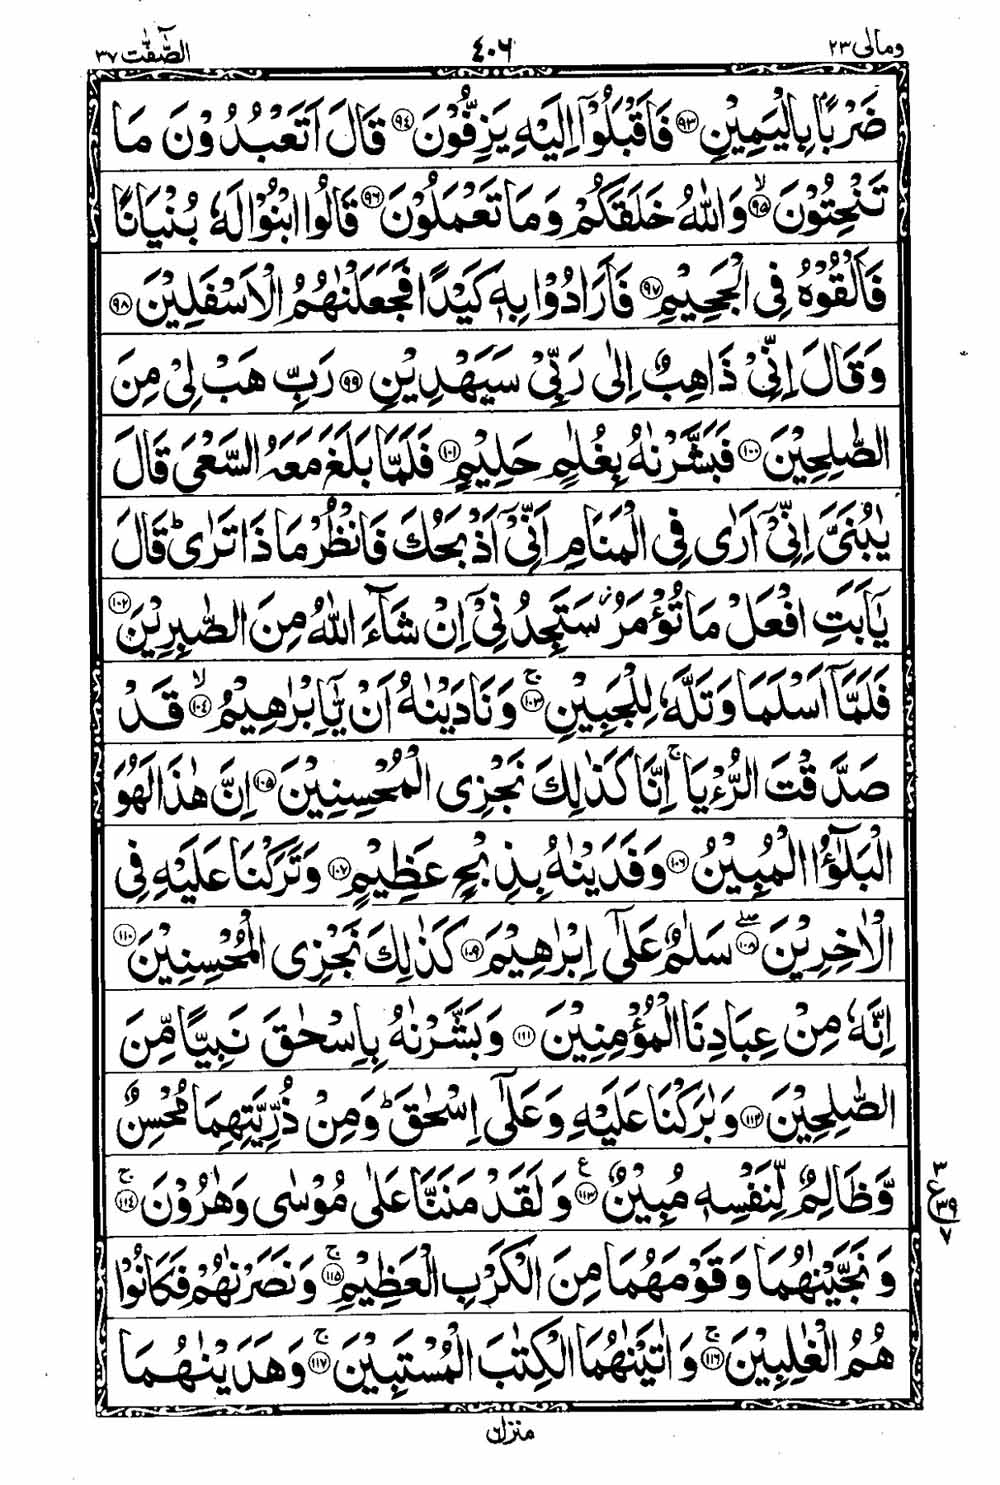 ومالی ٢٣ ٤٠٦ الصّٰٓفّٰت ٣٧
ضَرْبًۢا بِالْيَمِيْنِ ٩٣ فَاَقْبَلُوْٓا اِلَيْهِ يَزِفُّوْنَ ٩٤ قَالَ اَتَعْبُدُوْنَ مَا
تَنْحِتُوْنَ ۙ٩٥ وَاللّٰهُ خَلَقَكُمْ وَمَا تَعْمَلُوْنَ ٩٦ قَالُوا ابْنُوْا لَهٗ بُنْيَانًا
فَاَلْقُوْهُ فِى الْجَحِيْمِ ٩٧ فَاَرَادُوْا بِهٖ كَيْدًا فَجَعَلْنٰهُمُ الْاَسْفَلِيْنَ ٩٨
وَقَالَ اِنِّىْ ذَاهِبٌ اِلٰى رَبِّىْ سَيَهْدِيْنِ ٩٩ رَبِّ هَبْ لِىْ مِنَ
الصّٰلِحِيْنَ ١٠٠ فَبَشَّرْنٰهُ بِغُلٰمٍ حَلِيْمٍ ١٠١ فَلَمَّا بَلَغَ مَعَهُ السَّعْىَ قَالَ
يٰبُنَىَّ اِنِّىْٓ اَرٰى فِى الْمَنَامِ اَنِّىْٓ اَذْبَحُكَ فَانْظُرْ مَاذَا تَرٰىؕ قَالَ
يٰٓاَبَتِ افْعَلْ مَا تُؤْمَرُ سَتَجِدُنِىْٓ اِنْ شَآءَ اللّٰهُ مِنَ الصّٰبِرِيْنَ ١٠٢
فَلَمَّآ اَسْلَمَا وَتَلَّهٗ لِلْجَبِيْنِ ۚ١٠٣ وَنَادَيْنٰهُ اَنْ يّٰٓاِبْرٰهِيْمُ ۙ١٠٤ قَدْ
صَدَّقْتَ الرُّءْيَا ۚ اِنَّا كَذٰلِكَ نَجْزِى الْمُحْسِنِيْنَ ١٠٥ اِنَّ هٰذَا لَهُوَ
الْبَلٰٓؤُا الْمُبِيْنُ ١٠٦ وَفَدَيْنٰهُ بِذِبْحٍ عَظِيْمٍ ١٠٧ وَتَرَكْنَا عَلَيْهِ فِى
الْاٰخِرِيْنَ ۖ١٠٨ سَلٰمٌ عَلٰٓى اِبْرٰهِيْمَ ١٠٩ كَذٰلِكَ نَجْزِى الْمُحْسِنِيْنَ ١١٠
اِنَّهٗ مِنْ عِبَادِنَا الْمُؤْمِنِيْنَ ١١١ وَبَشَّرْنٰهُ بِاِسْحٰقَ نَبِيًّا مِّنَ
الصّٰلِحِيْنَ ١١٢ وَبٰرَكْنَا عَلَيْهِ وَعَلٰٓى اِسْحٰقَؕ وَمِنْ ذُرِّيَّتِهِمَا مُحْسِنٌ
وَّظَالِمٌ لِّنَفْسِهٖ مُبِيْنٌ ۧ١١٣ وَلَقَدْ مَنَنَّا عَلٰى مُوْسٰى وَهٰرُوْنَ ۚ١١٤
٣
ع ٣٩
٧
وَنَجَّيْنٰهُمَا وَقَوْمَهُمَا مِنَ الْكَرْبِ الْعَظِيْمِ ۚ١١٥ وَنَصَرْنٰهُمْ فَكَانُوْا
هُمُ الْغٰلِبِيْنَ ۚ١١٦ وَاٰتَيْنٰهُمَا الْكِتٰبَ الْمُسْتَبِيْنَ ۚ١١٧ وَهَدَيْنٰهُمَا
منزل ٦